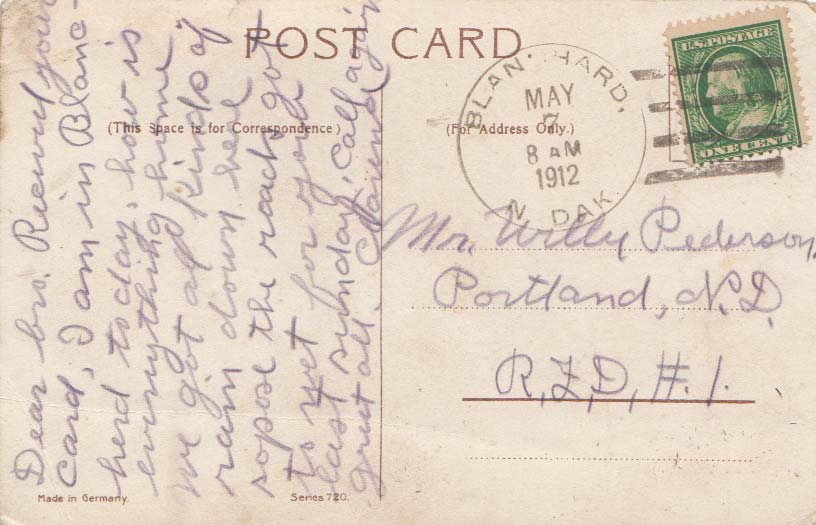 POST CARD
(This Space is for Correspondence.)
(For Address Only.)
BLANCHARD,
MAY
7
8 AM
1912
N. DAK.
U.S. POSTAGE
ONE CENT
Dear bro. Recievd your
card, I am in Blanc-
herd today, how is
everything home
we got all kinds of
rain down here
sopose the roads got
to wet for you
last sunday, call again
greet all.
Mr. Willy Pederson,
Portland, N.D.
R,F,D,#.1.
Made in Germany.
Series 720.